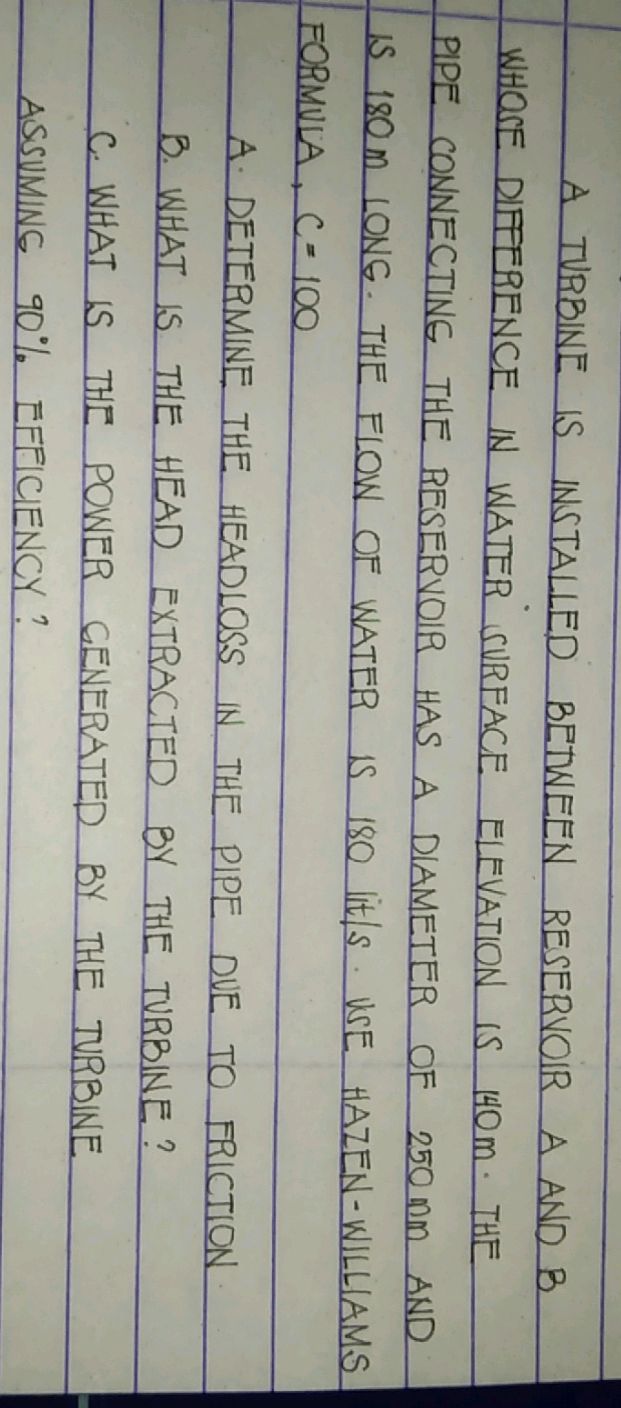 A TURBINE IS INSTALLED BETWEEN RESERVOIR A AND B
WHOSE DIFFERENCE IN WATER SURFACE ELEVATION IS 140 m. THE
PIPE CONNECTING THE RESERVOIR HAS A DIAMETER OF 250 mm AND
IS 180 m LONG. THE FLOW OF WATER IS 180 lit/s. USE HAZEN-WILLIAMS
FORMULA, C = 100
A. DETERMINE THE HEADLOSS IN THE PIPE DUE TO FRICTION.
B. WHAT IS THE HEAD EXTRACTED BY THE TURBINE?
C. WHAT IS THE POWER GENERATED BY THE TURBINE
ASSUMING 90% EFFICIENCY?